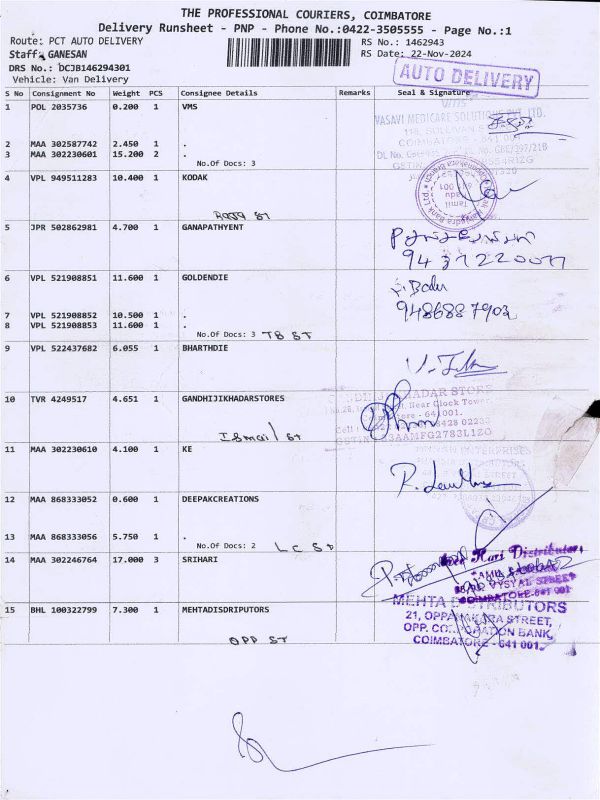 THE PROFESSIONAL COURIERS, COIMBATORE
Delivery Runsheet - PNP - Phone No.:0422-3505555 - Page No.:1
Route: PCT AUTO DELIVERY
RS No.: 1462943
Staff: GANESAN
RS Date: 22-Nov-2024
DRS No.: DCJB146294301
Vehicle: Van Delivery
AUTO DELIVERY
S No Consignment No Weight PCS Consignee Details Remarks Seal & Signature
1 POL 2035736 0.200 1 VMS
VASAVI MEDICARE SOLUTIONS PVT. LTD.
COIMBATORE
2 MAA 302587742 2.450 1 .
3 MAA 302230601 15.200 2 .
No.Of Docs: 3
4 VPL 949511283 10.400 1 KODAK
Raja St
5 JPR 502862981 4.700 1 GANAPATHYENT
6 VPL 521908851 11.600 1 GOLDENDIE
Babu
9486887902
7 VPL 521908852 10.500 1 .
8 VPL 521908853 11.600 1 .
No.Of Docs: 3 TB ST
9 VPL 522437682 6.055 1 BHARTHDIE
10 TVR 4249517 4.651 1 GANDHIJIKHADARSTORES
KHADAR STORE
Near Clock Tower,
641 001.
Ismail St
11 MAA 302230610 4.100 1 KE
12 MAA 868333052 0.600 1 DEEPAKCREATIONS
13 MAA 868333056 5.750 1 .
No.Of Docs: 2 LC St
14 MAA 302246764 17.000 3 SRIHARI
Hari Distributors
VYSYAL STREET
COIMBATORE-641 001
15 BHL 100322799 7.300 1 MEHTADISDRIPUTORS
MEHTA DISTRIBUTORS
21, OPPANAKARA STREET,
OPP. CORPORATION BANK,
COIMBATORE - 641 001.
OPP ST